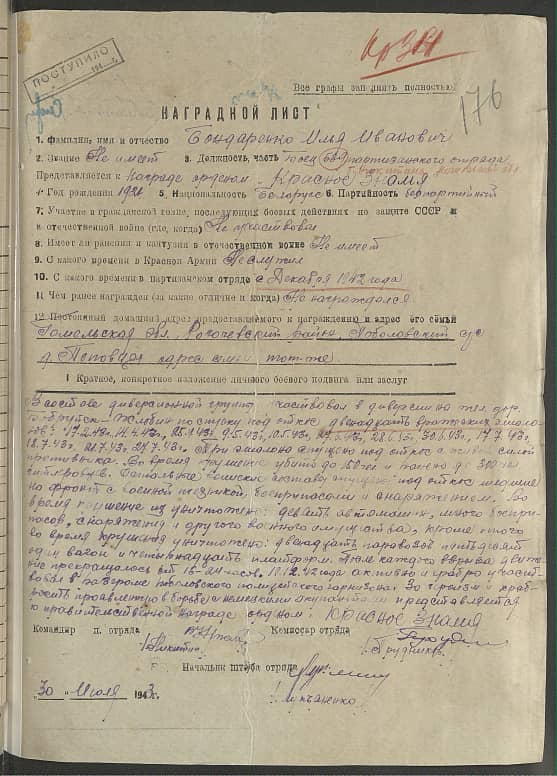 ПОСТУПИЛО
194 г.
КрЗн
176
Все графы заполнять полностью
НАГРАДНОЙ ЛИСТ
1. Фамилия, имя и отчество Бондаренко Илья Иванович
2. Звание Не имеет 3. Должность, часть боец 639 партизанского отряда
Представляется к награде орденом Красное Знамя
4 Год рождения 5. Национальность Белорус 6. Партийность беспартийный
7. Участие в гражданской войне, последующих боевых действиях по защите СССР и
в отечественной войне (где, когда) Не участвовал
8. Имеет ли ранения и контузии в отечественной войне Не имеет
9. С какого времени в Красной Армии Не служил
10. С какого времени в партизанском отряде с Декабря 1942 года
11. Чем ранее награжден (за какие отличие и когда) Не награждался
12. Постоянный домашний адрес представляемого к награждению и адрес его семьи
Гомельская обл. Рогачевский район,
д. адрес семьи тот-же
I Краткое, конкретное изложение личного боевого подвига или заслуг
В составе диверсионной группы участвовал в диверсиях на жел. дор.
Бобруйск - Жлобин по спуску под откос двенадцать вражеских эшело-
нов: 17.2.43г. 14.4.43г. 25.1.43г. 9.5.43г. 10.5.43г. 28.6.43г. 30.6.43г. 17.7.43г.
18.7.43г. 21.7.43г. 24.7.43г. Три эшелона спущено под откос с живой силой
противника. Во время крушение убито до 150 и ранено до 300
гитлеровцев. Остальные воинские эшелоны спущено под откос шедшие
на фронт с военной техникой, боеприпасами и снаряжением. Во
время крушение уничтожено: девять автомашин, много боепри-
пасов, снаряжения и другого военного имущества, кроме этого
во время крушения уничтожено: двенадцать паровозов пятьдесят
один вагон и четырнадцать платформ. После каждого взрыва движе-
ние прекращалось от 15-24 часов. 10.12.42 года активно и храбро участ-
вовал в разгроме немецкого гарнизона. За и храб-
рость проявленную в борьбе с немецкими оккупантами представляется
к правительственной награде орденом: КРАСНОЕ ЗНАМЯ
Командир п. отряда Комиссар отряда
/Никитин /Прудников
Начальник штаба отряда
/Лукьяненко
"30" Июля 1943г.